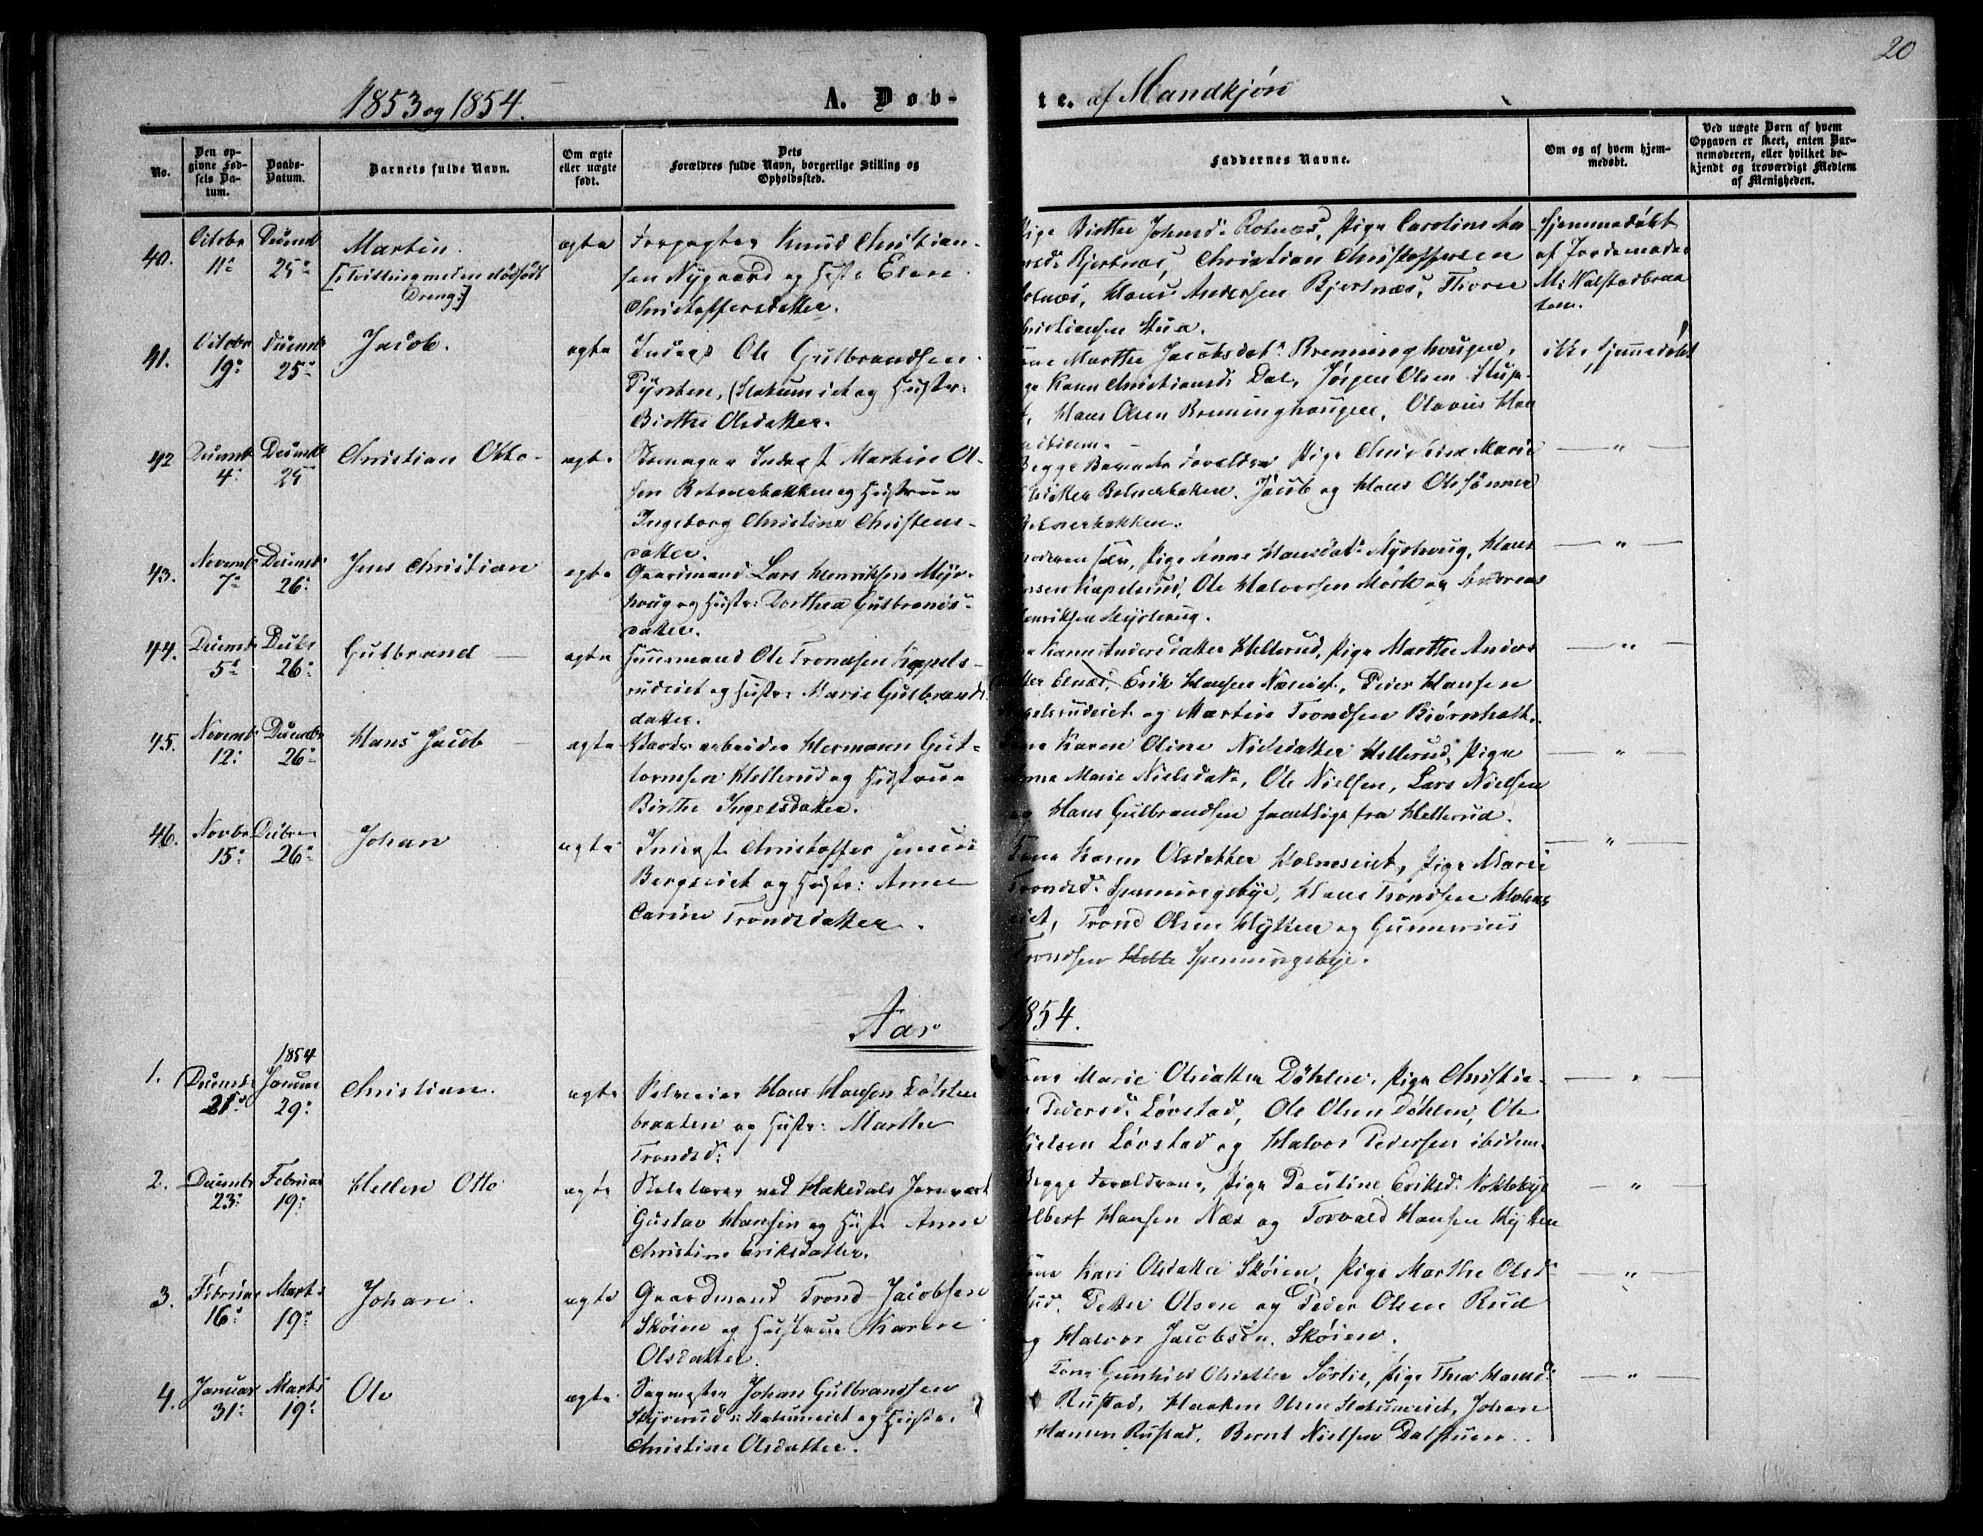 20
1853 og 1854.
A. Døb-
te. af Mandkjøn
No.
Den op-
givne Fød-
sels Da-
tum.
Daabs-
Datum.
Barnets fulde Navn.
Om ægte
eller uægte
født.
Dets
Forældres fulde Navn, borgerlige Stilling og
Opholdssted.
Faddernes Navne.
Om og af hvem hjem-
medøbt.
Ved uægte Børn af hvem
Opgaven er skeet, enten Bar-
nemoderen, eller hvilket be-
kjendt og troværdigt Medlem
af Menigheden.
40.
Octobr
11
Decemb
25
Martin.
[Tvilling med en dødfødt
Dreng:]
ægte
Forpagter Knud Christian-
sen Nygaard og Hustr Elen
Christoffersdatter.
Pige Birthe Johnsd. Rotnæs, Pige Caroline
Bjertnæs, Christian Christoffersen
Rotnæs, Hans Andersen Bjertnæs, Thore
Christiansen Stua.
Hjemmedøbt
af Jordemoder
M. Walstadbraa-
ten.
41.
Octobr
19
Decemb
25
Jacob.
ægte
Inderst Ole Gulbrandsen
Hustr:
Birthe Olsdatter.
Marthe Jacobsdat: Brenninghougen,
Karen Christiansd: Dal, Jørgen Olsen
Hans Olsen Brenninghougen, Olavus
ibidem.
ikke Hjemmedøbt
42
Decemb
4
Decemb
25
Christian Otto
ægte
Inderst Martin Ol-
sen og Hustrue
Ingeborg Christine Christens-
datter.
Begge Barnets Forældre, Pige Christine Marie
Jacob og Hans Olesønner
— " —
43.
Novemb
7
Decemb
26
Jens Christian
ægte
Gaardmand Lars Henriksen Myr-
houg og Hustr: Dorthea Gulbrands-
datter.
Pige Anne Hansdat: Myrhoug, Hans
Ole Halvorsen Mork og Andreas
Henriksen Myrhoug.
— " —
44.
Decemb
5
Decbr
26
Gulbrand
ægte
Huusmand Ole Trondsen Kappels-
rudeiet og Hustr: Marie Gulbrands
datter.
Karen Andersdatter Hellerud, Pige Marthe Anders
Elnæs, Erik Hansen Næseiet, Peder Hansen
Kappelsrudeiet og Martin Trondsen Bjørnholt.
— " —
45.
Novemb
12
Decembr
26
Hans Jacob
ægte
Gaardsarbeider Hermann Gut-
tormsen Hellerud og Hustrue
Birthe Ingelsdatter.
Kone Karen Oline Nielsdatter Hellerud, Pige
Anne Marie Nielsdat, Ole Nielsen, Lars Nielsen
og Hans Gulbrandsen samtlige fra Hellerud.
— " —
46.
Novbr
15
Decbr
26
Johan
ægte
Inderst Christoffer Jensen
Bergseiet og Hustr: Anne
Carine Trondsdatter.
Kone Karen Olsdatter Holmseiet, Pige Marie
Trondsd: Spenningsbye, Hans Trondsen Holms
eiet, Trond Olsen Hytten og Gunnerius
Trondsen Spenningsbye.
— " —
Aar 1854.
1.
Decemb
21
1854
Januar
29
Christian.
ægte
Selveier Hans Hansen Døhlen
braaten og Hustr: Marthe
Trondsd:
Kone Marie Olsdatter Døhlen, Pige Christi-
ne Pedersd: Løvstad, Ole Olsen Døhlen, Ole
Nielsen Løvstad og Halvor Pedersen ibidem
— " —
2.
Decembr
23
Februar
19
Hellen Otto
ægte
Skolelærer ved Hakedals Jernværk
Gustav Hansen og Hustr Anne
Christine Eriksdatter.
Begge Forældrene, Pige Pauline Eriksd: Nokleby
Albert Hansen Næs og Torvald Hansen Hytten
— " —
3.
Februar
16
Marts
19
Johan.
ægte
Gaardmand Trond Jacobsen
Skøien og Hustrue Karen
Olsdatter.
Kone Kari Olsdatter Skøien, Pige Marthe Olsd
Rud, Petter Olsen og Peder Olsen Rud
og Halvor Jacobsen Skøien.
— " —
4.
Januar
31
Marts
19
Ole
ægte
Sagmester Johan Gulbrandsen
og Hustr.
Christine Olsdatter.
Kone Gunhild Olsdatter Sørlie, Pige Thea Hansd:
Rustad, Haaken Olsen Slatumseiet, Johan
Hansen Rustad, Bernt Nielsen Dalstuen.
— " —